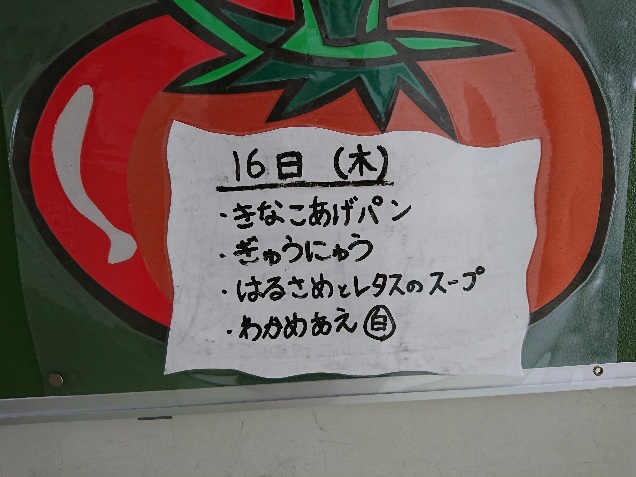 16日(木)
・きなこあげパン
・ぎゅうにゅう
・はるさめとレタスのスープ
・わかめあえ 自